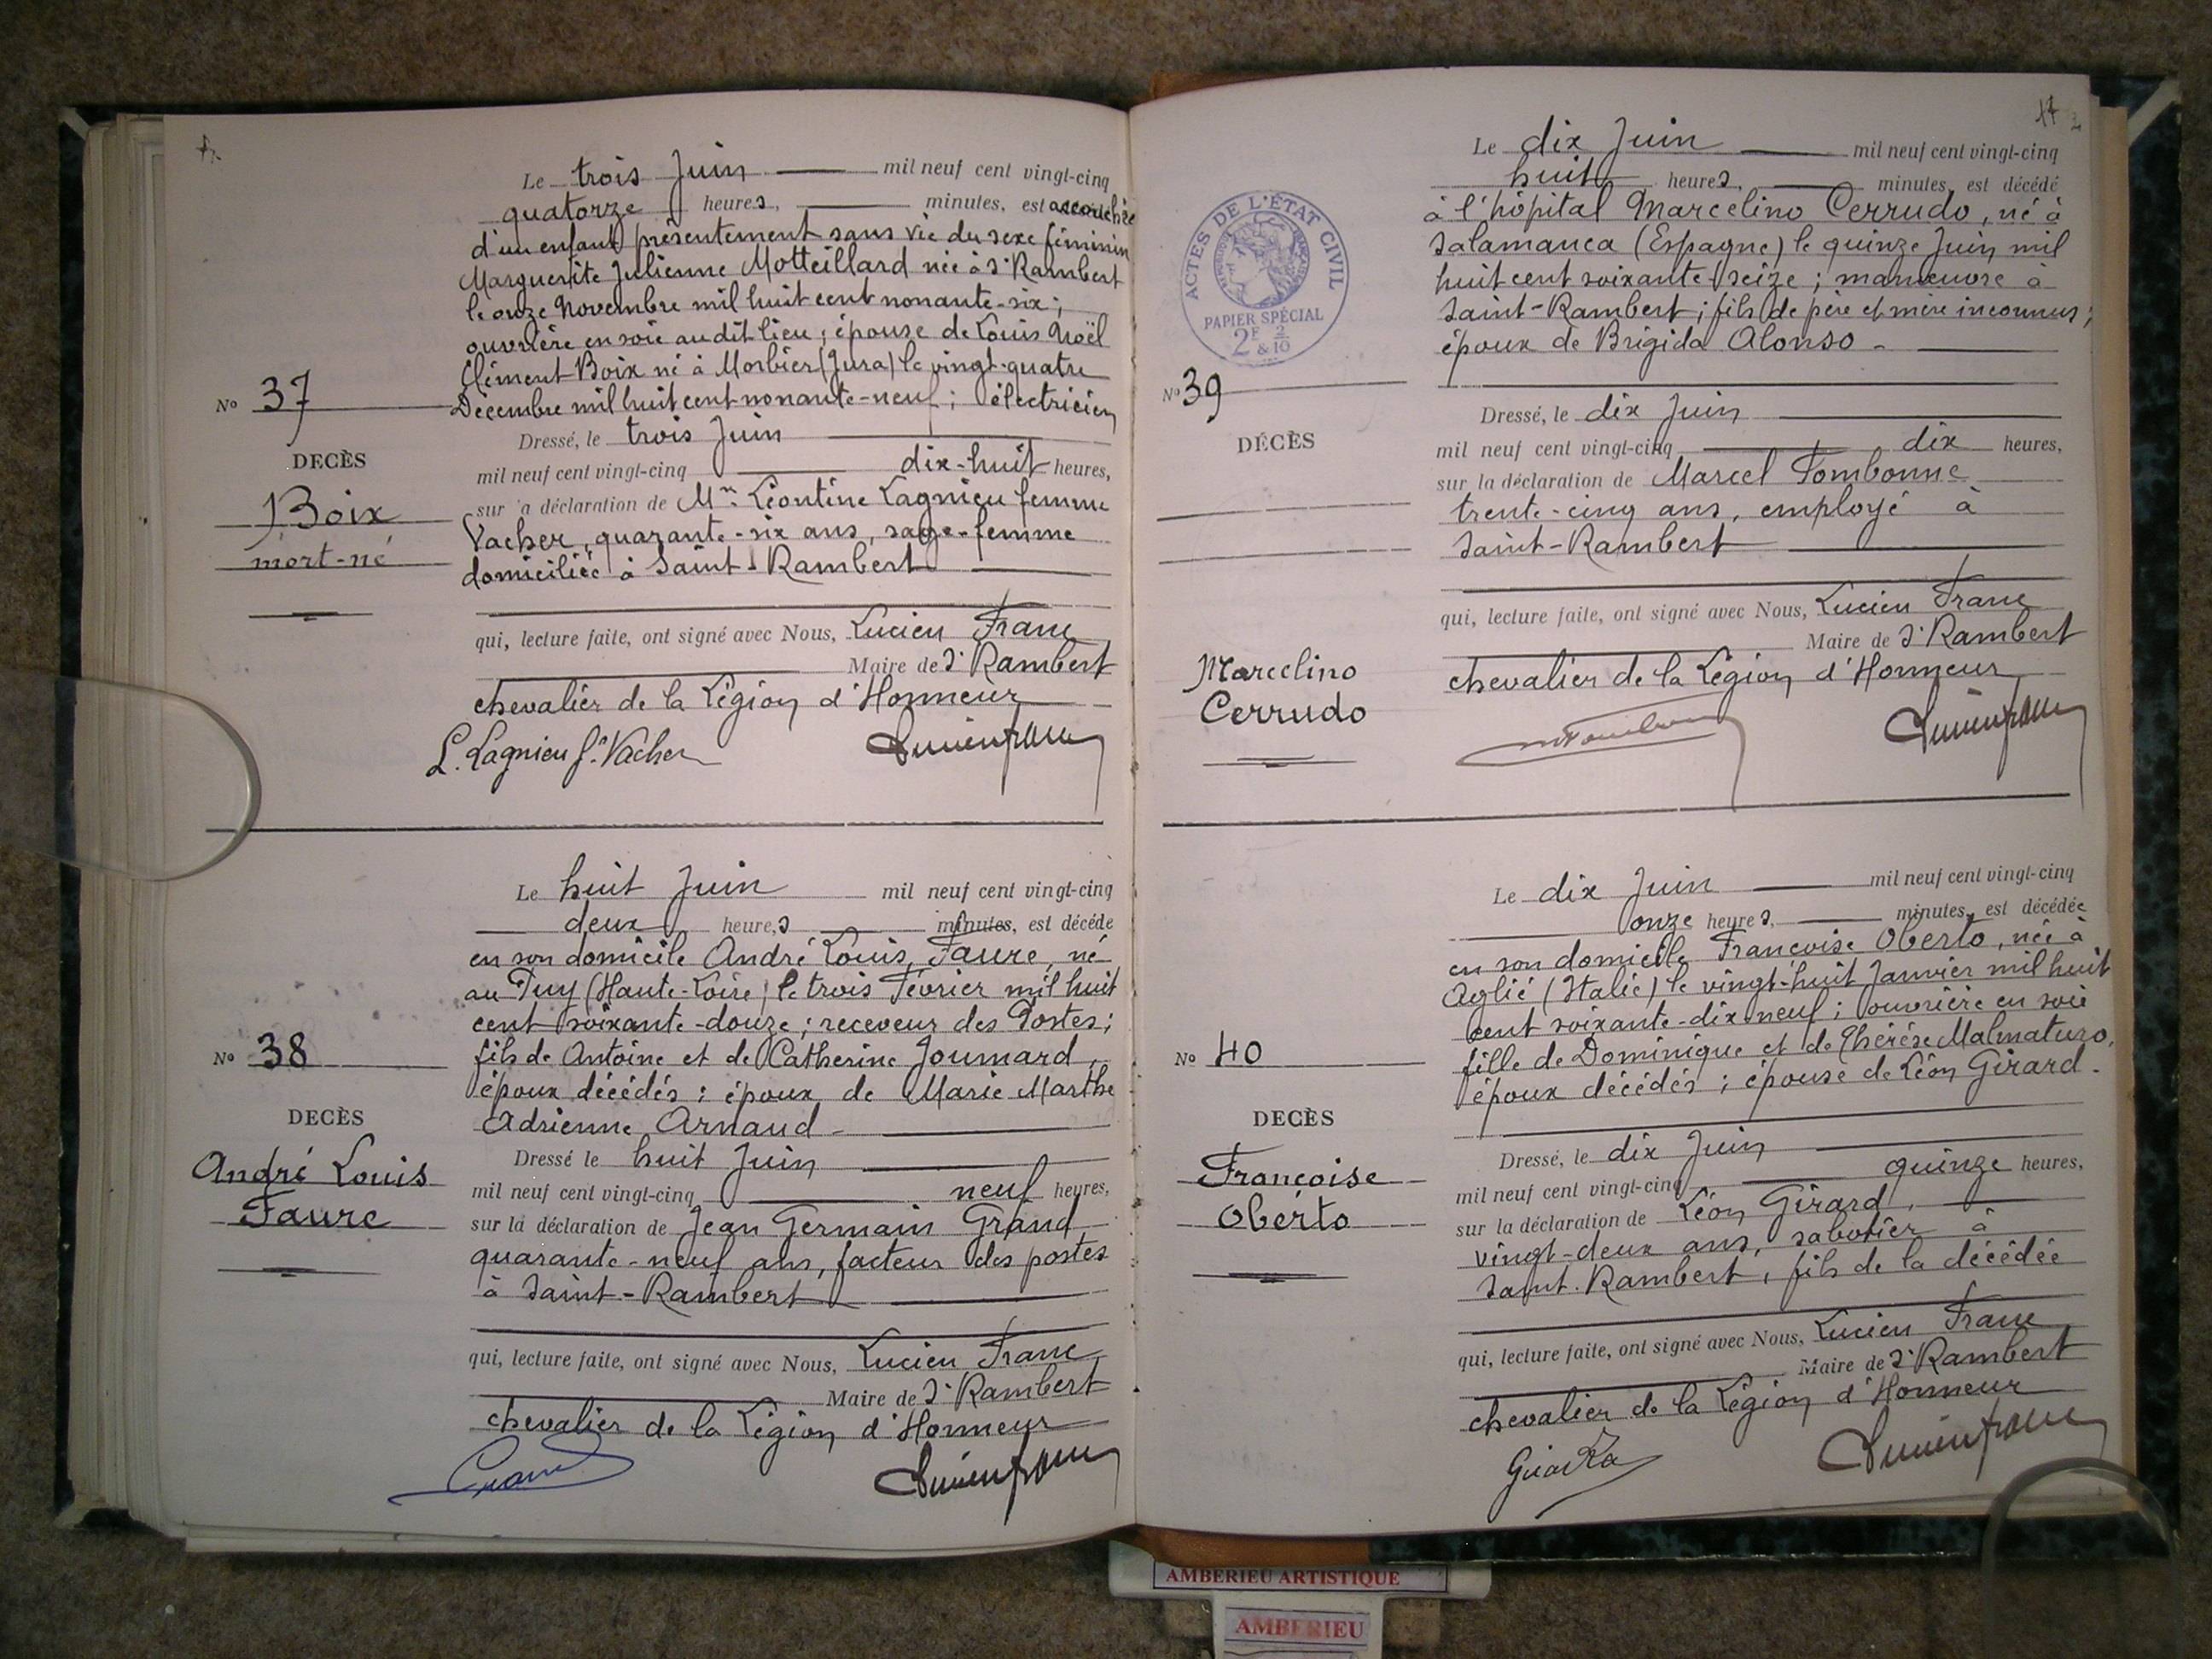 Le trois Juin mil neuf cent vingt-cinq
quatorze heures, minutes, est accouchée
d'un enfant présentement sans vie du sexe féminin
Marguerite Julienne Motteillard née à St Rambert
le onze Novembre mil huit cent nonante-six;
ouvrière en soie audit lieu; épouse de Louis Noël
Clément Boix né à Morbier (Jura) le vingt-quatre
Décembre mil huit cent nonante-neuf; électricien
No 37
DECÈS
Boix
mort-né
Dressé, le trois Juin
mil neuf cent vingt-cinq dix-huit heures,
sur la déclaration de Me Léontine Lagnieu femme
Vacher, quarante-six ans, sage-femme
domiciliée à Saint-Rambert
qui, lecture faite, ont signé avec Nous, Lucien Franc
Maire de St Rambert
chevalier de la Légion d'Honneur
L. Lagnieu fe Vacher Lucien Franc
Le huit Juin mil neuf cent vingt-cinq
deux heures minutes, est décédé
en son domicile André Louis Faure, né
au Puy (Haute-Loire) le trois Février mil huit
cent soixante-douze; receveur des Postes;
fils de Antoine et de Catherine Joumard,
époux décédés; époux de Marie Marthe
Adrienne Arnaud
No 38
DECÈS
André Louis
Faure
Dressé le huit Juin
mil neuf cent vingt-cinq neuf heures,
sur la déclaration de Jean Germain Grand
quarante-neuf ans, facteur des postes
à Saint-Rambert
qui, lecture faite, ont signé avec Nous, Lucien Franc
Maire de St Rambert
chevalier de la Légion d'Honneur
Grand Lucien Franc
17
Le dix Juin mil neuf cent vingt-cinq
huit heures, minutes, est décédé
à l'hôpital Marcelino Cerrudo, né à
Salamanca (Espagne) le quinze Juin mil
huit cent soixante-seize; manœuvre à
Saint-Rambert; fils de père et mère inconnus;
époux de Brigida Alonso
ACTES DE L'ÉTAT CIVIL
PAPIER SPÉCIAL
2F & 2/10
No 39
DÉCÈS
Marcelino
Cerrudo
Dressé, le dix Juin
mil neuf cent vingt-cinq dix heures,
sur la déclaration de Marcel Tombonne
trente-cinq ans, employé à
Saint-Rambert
qui, lecture faite, ont signé avec Nous, Lucien Franc
Maire de St Rambert
chevalier de la Légion d'Honneur
Lucien Franc
Le dix Juin mil neuf cent vingt-cinq
onze heures, minutes, est décédée
en son domicile Françoise Oberto, née à
Aglié (Italie) le vingt-huit Janvier mil huit
cent soixante-dix-neuf; ouvrière en soie
fille de Dominique et de Thérèse Malmaturo,
époux décédés; épouse de Léon Girard.
No 40
DECÈS
Françoise
Oberto
Dressé, le dix Juin
mil neuf cent vingt-cinq quinze heures,
sur la déclaration de Léon Girard,
vingt-deux ans, sabotier à
Saint-Rambert, fils de la décédée
qui, lecture faite, ont signé avec Nous, Lucien Franc
Maire de St Rambert
chevalier de la Légion d'Honneur
Lucien Franc
AMBERIEU ARTISTIQUE
AMBERIEU